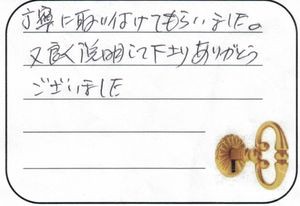 丁寧に取り付けてもらいました。
又良く説明して下さりありがとう
ございました